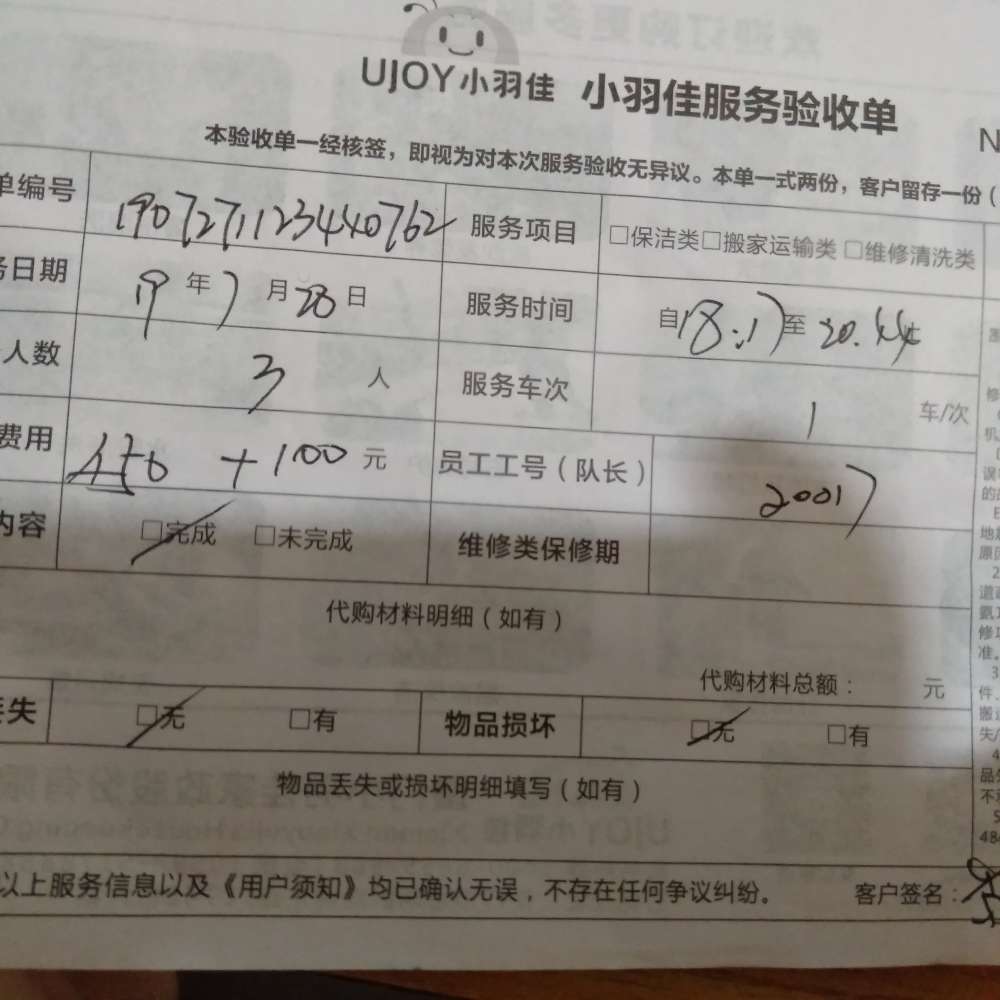 UJOY小羽佳 小羽佳服务验收单 N
本验收单一经核签，即视为对本次服务验收无异议。本单一式两份，客户留存一份（
单编号 1907271123440762 服务项目 □保洁类□搬家运输类 □维修清洗类
务日期 19年7月28日 服务时间 自18:17至20.44
人数 3 人 服务车次 1 车/次
费用 450 +100 元 员工工号（队长） 20017
内容 □完成 □未完成 维修类保修期
代购材料明细（如有）
代购材料总额： 元
丢失 □无 □有 物品损坏 □无 □有
物品丢失或损坏明细填写（如有）
以上服务信息以及《用户须知》均已确认无误，不存在任何争议纠纷。 客户签名：